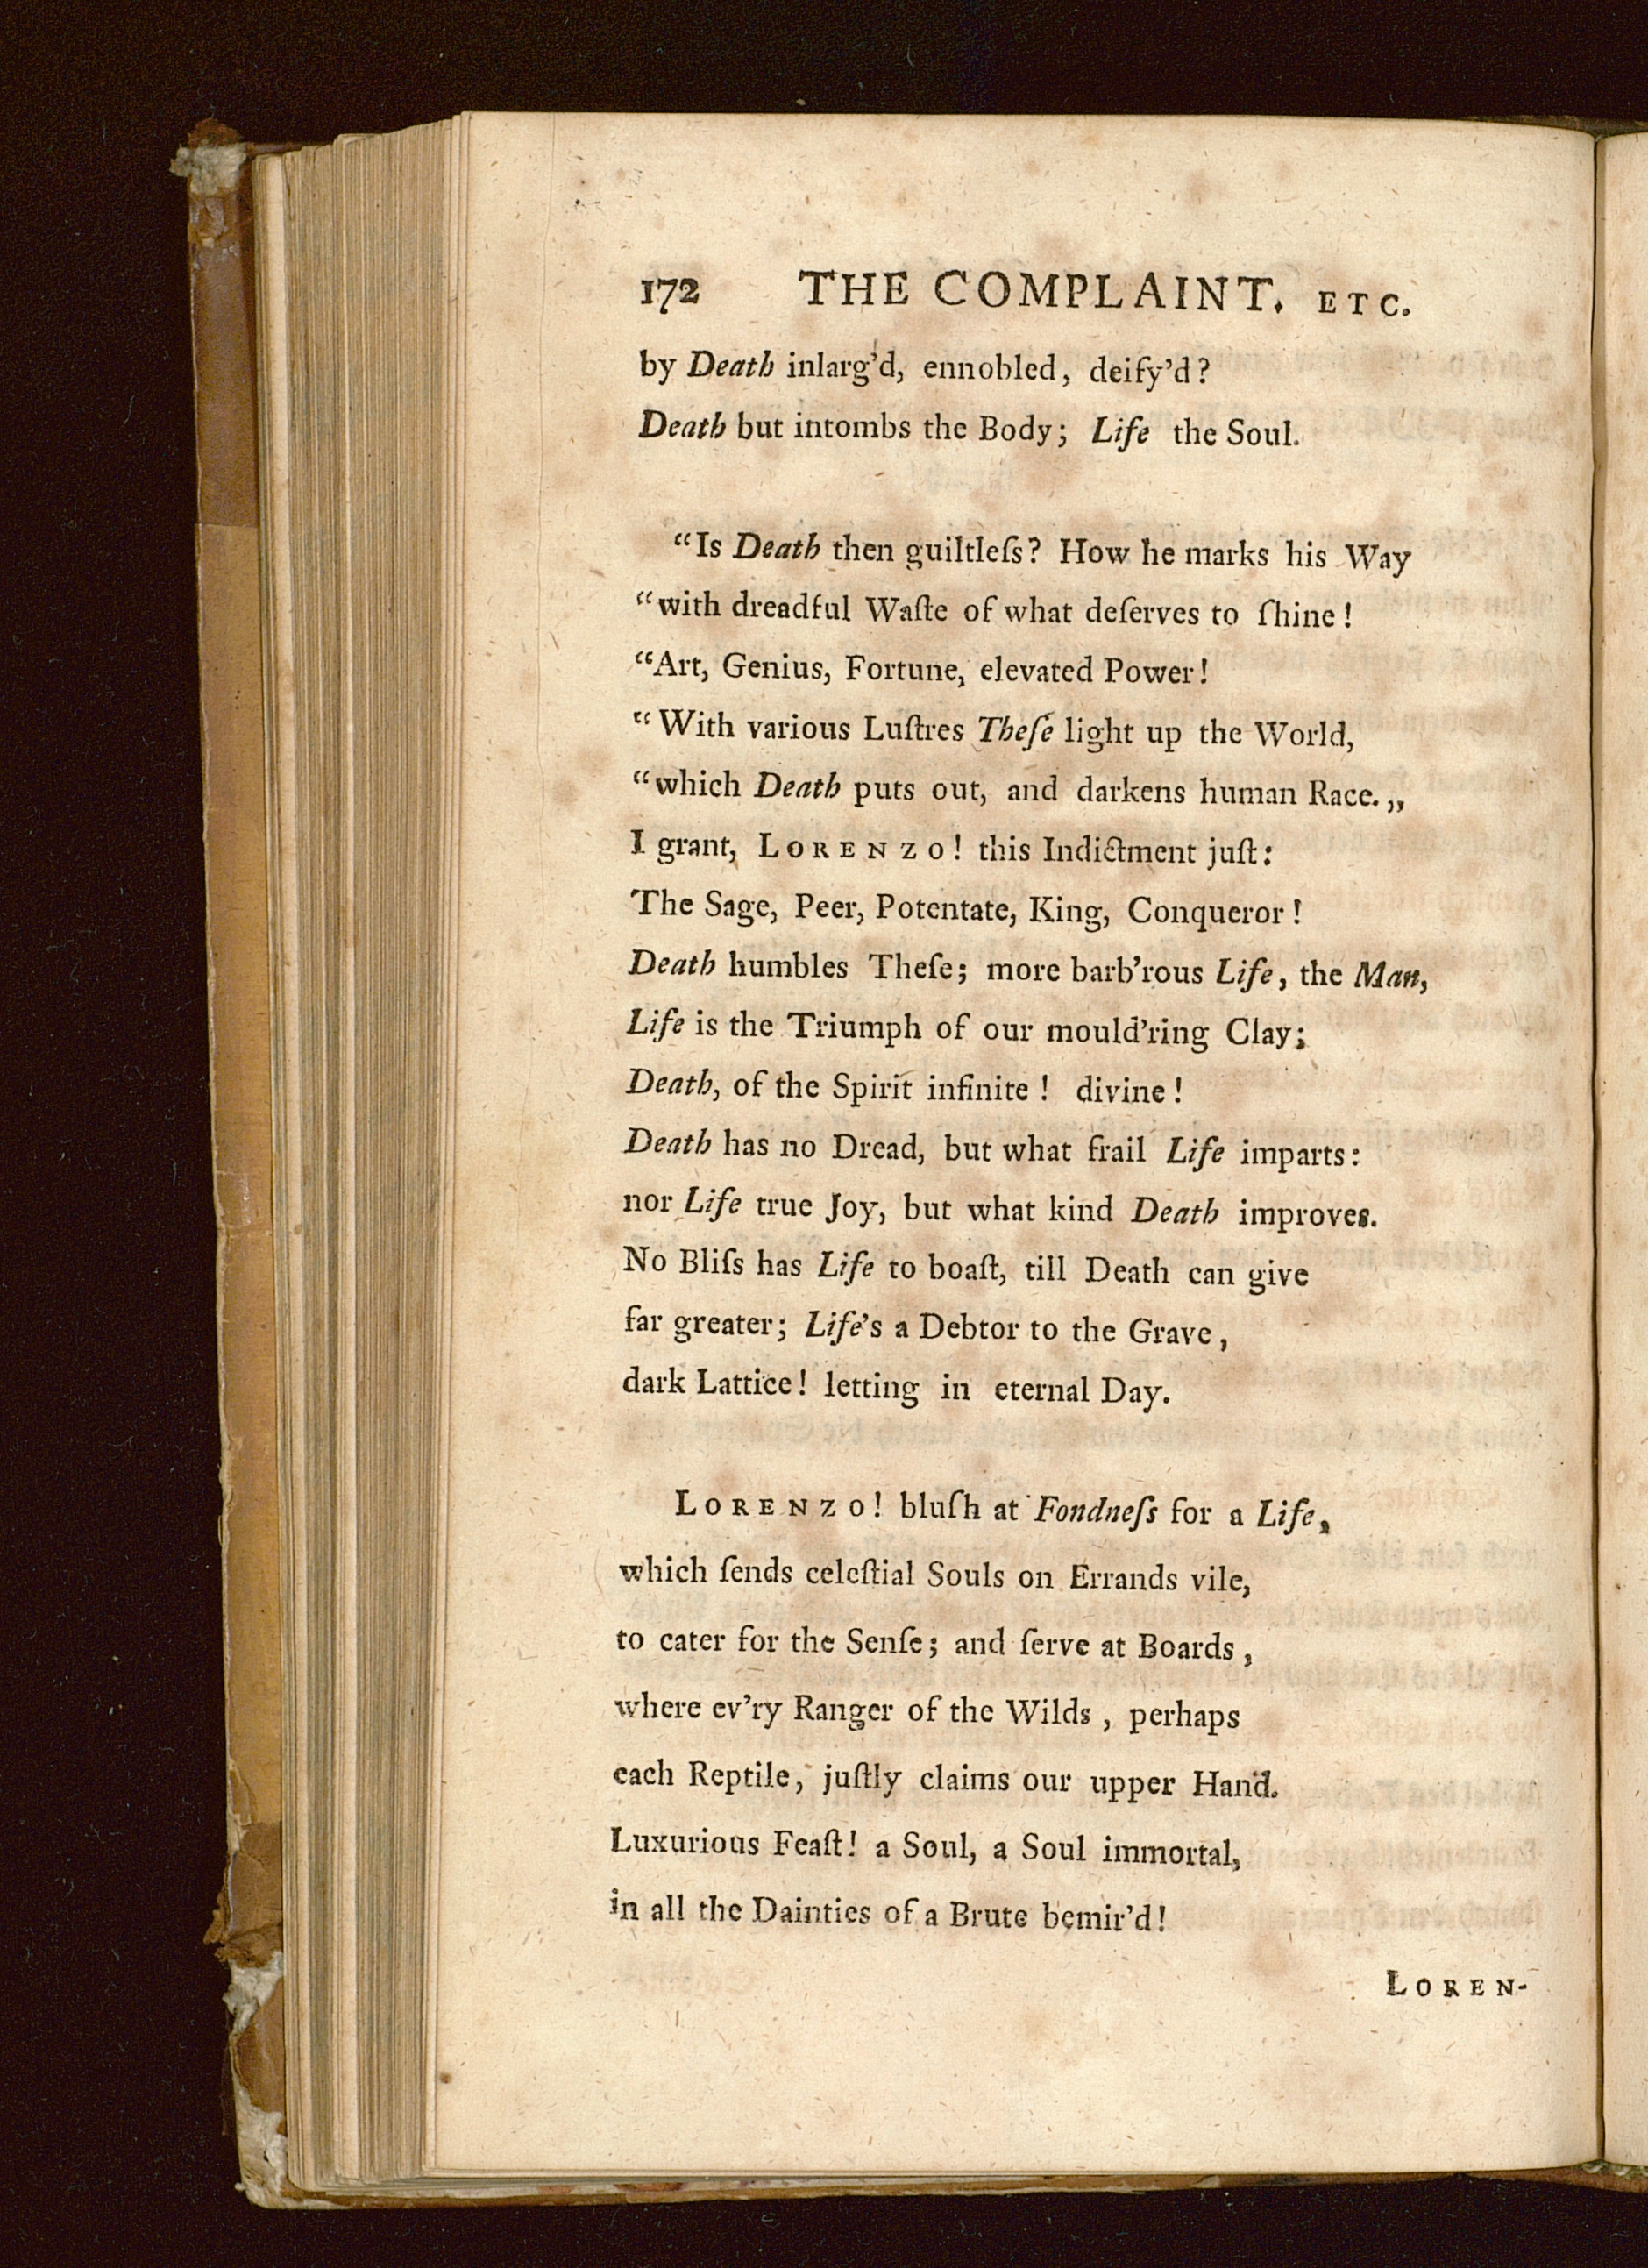 172 THE COMPLAINT. ETC.
by Death inlarg'd, ennobled, deify'd?
Death but intombs the Body; Life the Soul.
“Is Death then guiltleſs? How he marks his Way
“with dreadful Waſte of what deſerves to ſhine!
“Art, Genius, Fortune, elevated Power!
“With various Luſtres Theſe light up the World,
“which Death puts out, and darkens human Race.„
I grant, LORENZO! this Indictment juſt:
The Sage, Peer, Potentate, King, Conqueror!
Death humbles Theſe; more barb'rous Life, the Man,
Life is the Triumph of our mould'ring Clay;
Death, of the Spirit infinite! divine!
Death has no Dread, but what frail Life imparts:
nor Life true Joy, but what kind Death improves.
No Bliſs has Life to boaſt, till Death can give
far greater; Life's a Debtor to the Grave,
dark Lattice! letting in eternal Day.
LORENZO! bluſh at Fondneſs for a Life,
which ſends celeſtial Souls on Errands vile,
to cater for the Senſe; and ſerve at Boards,
where ev'ry Ranger of the Wilds, perhaps
each Reptile, juſtly claims our upper Hand.
Luxurious Feaſt! a Soul, a Soul immortal,
in all the Dainties of a Brute bemir'd!
LOREN-